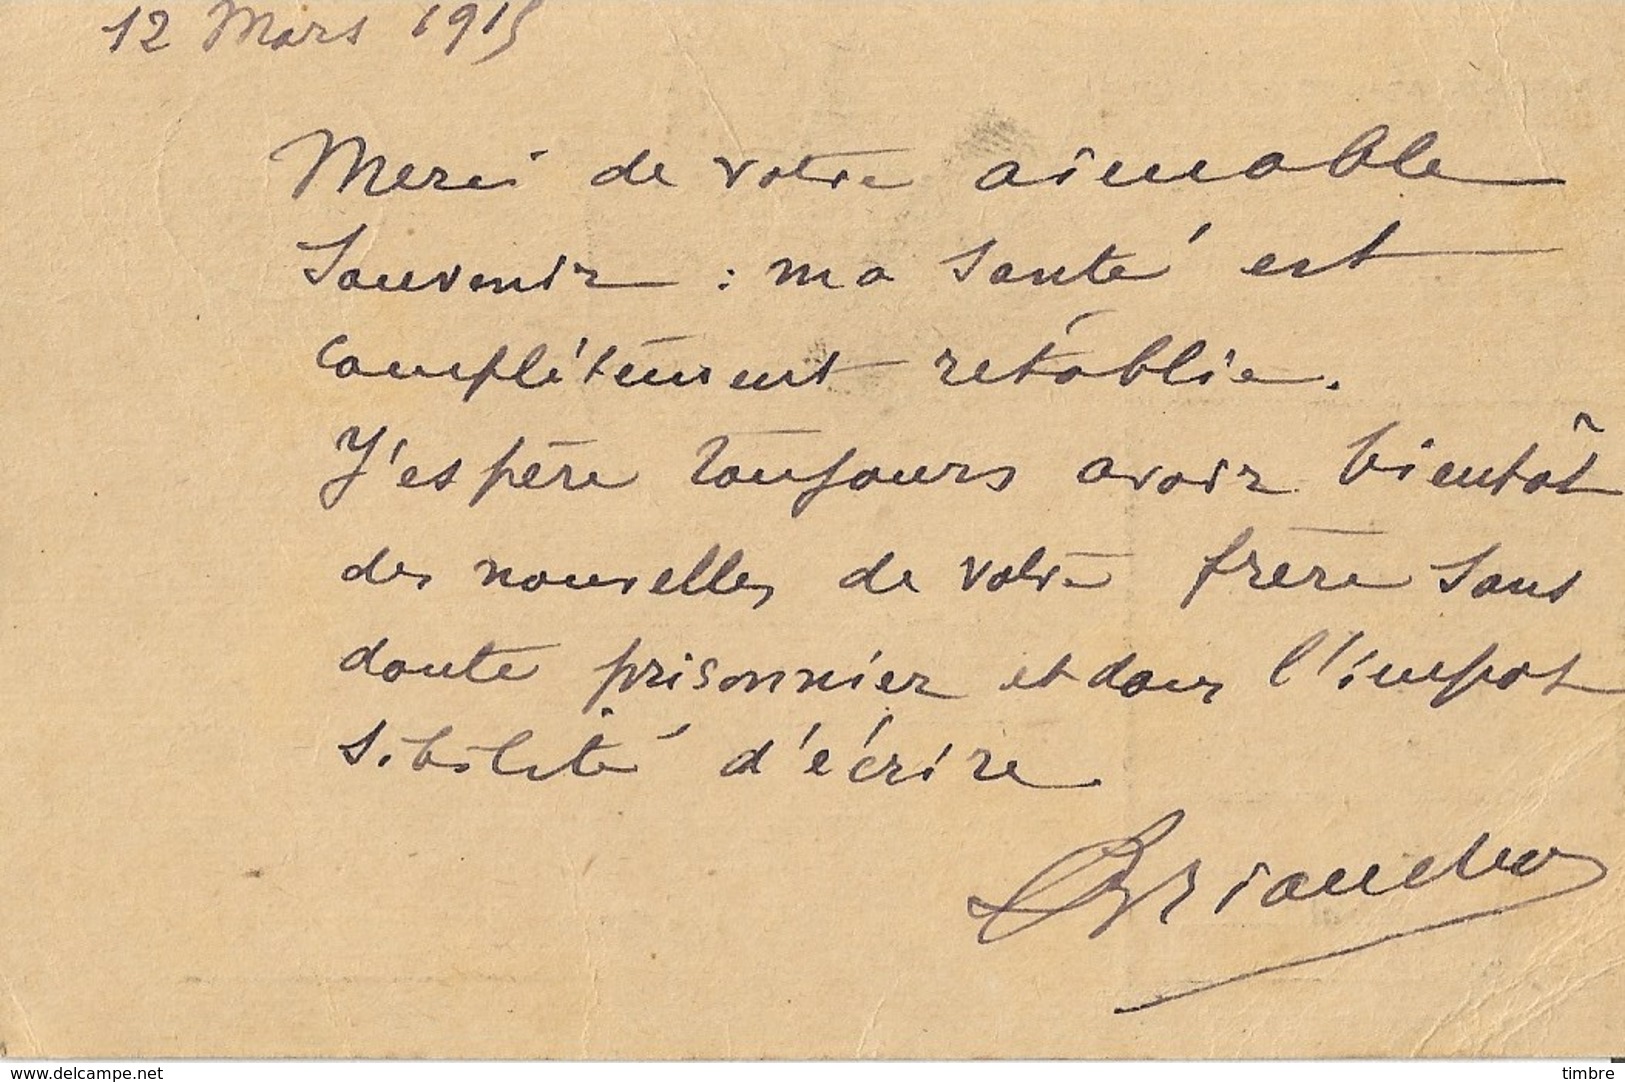 12 Mars 1915
Merci de votre aimable
Souvenir : ma Santé est
complètement rétablie.
J'espère toujours avoir bientôt
des nouvelles de votre frère Sans
doute prisonnier et dans l'impos
sibilité d'écrire
www.delcampe.net
timbre